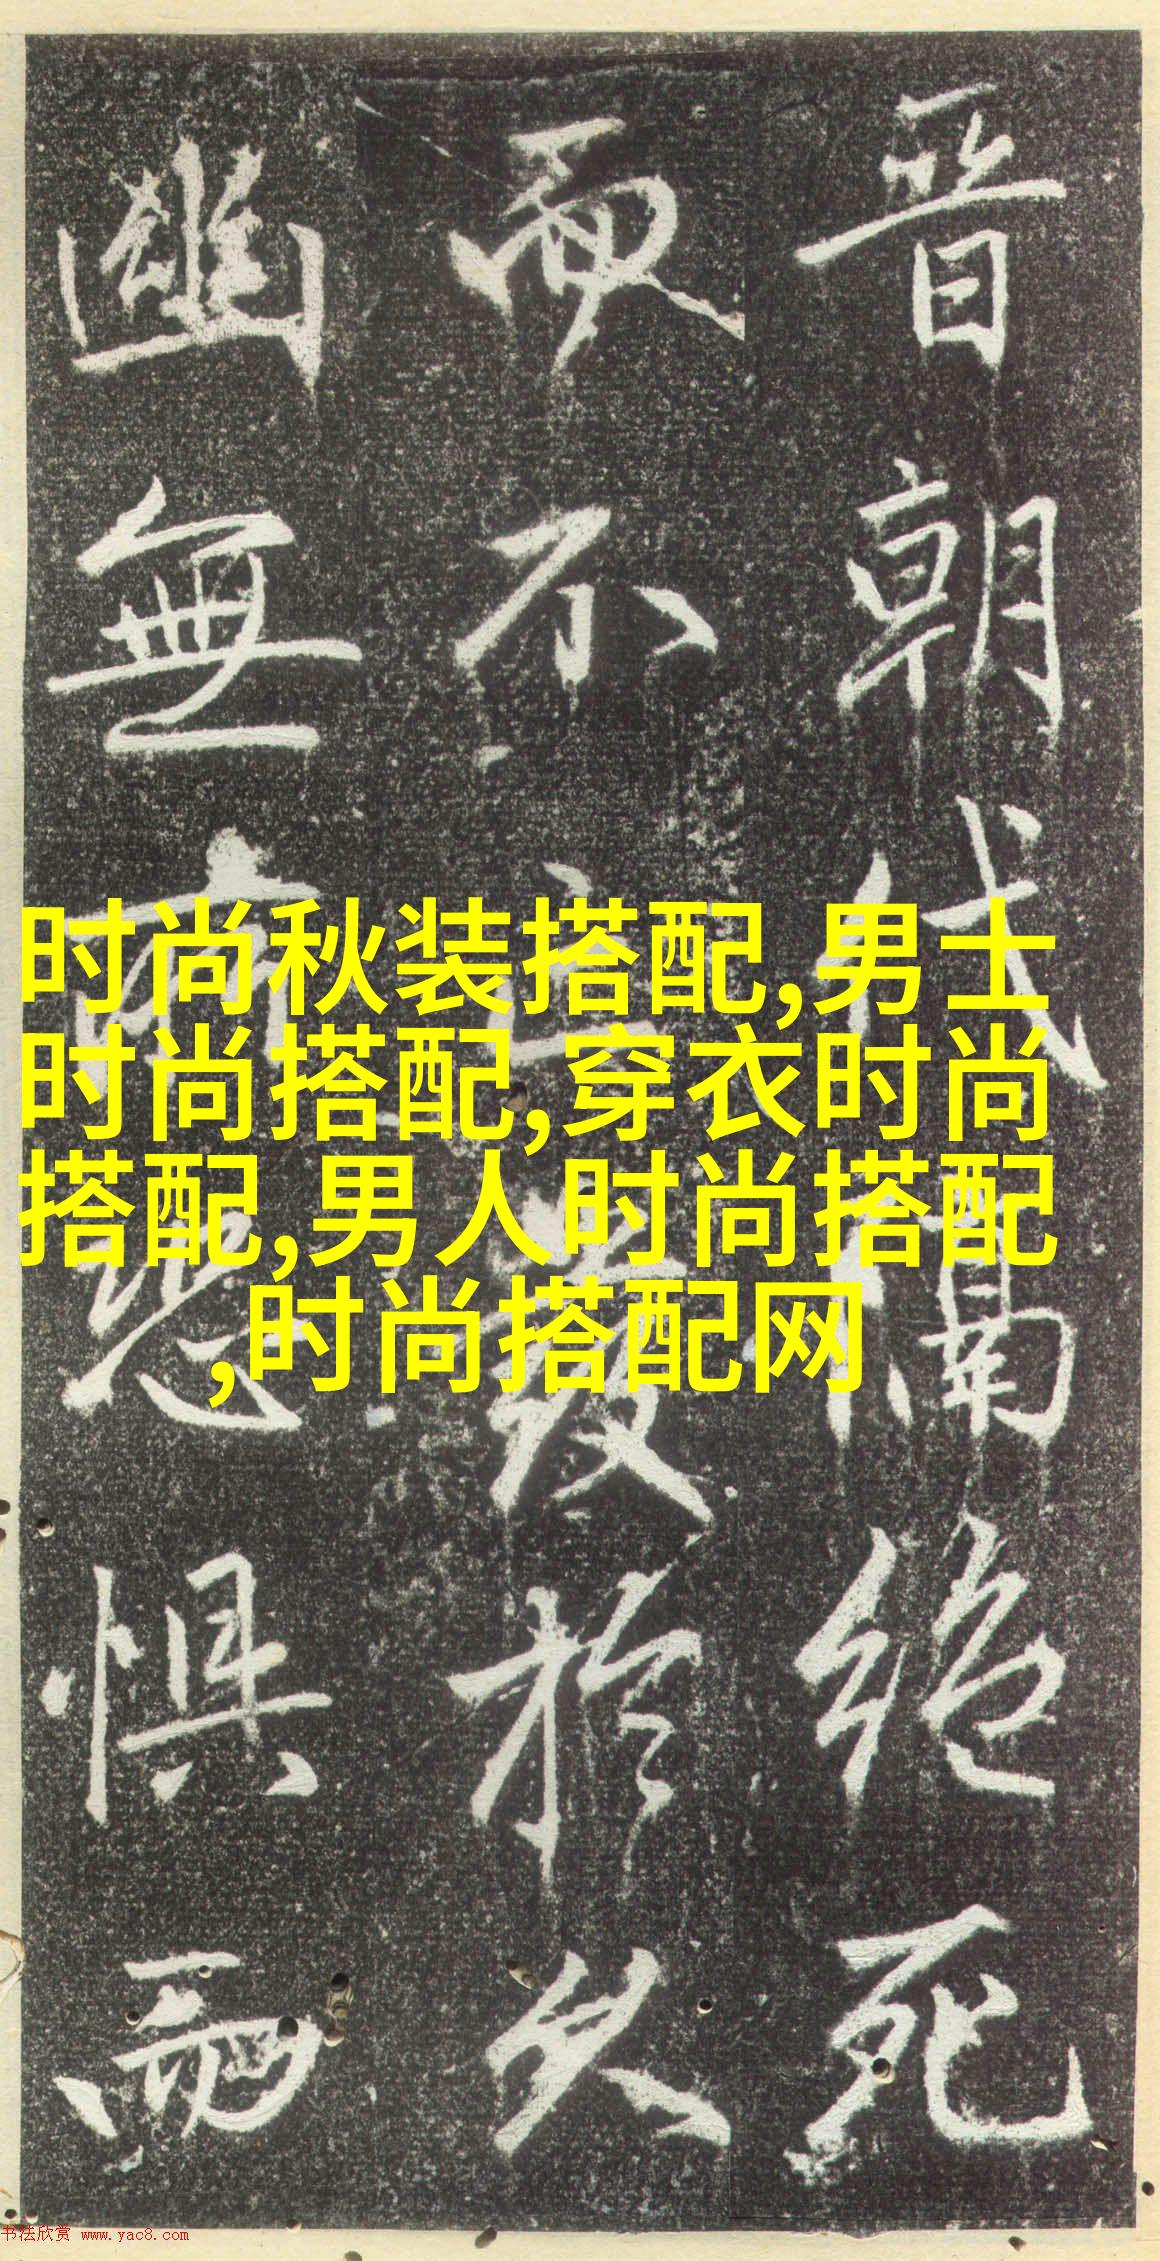 晋朝代隔絶死
而不亡發於久
幽無懼而
时尚秋装搭配,男士
时尚搭配,穿衣时尚
搭配,男人时尚搭配
,时尚搭配网
书法欣赏 www.yac8.com